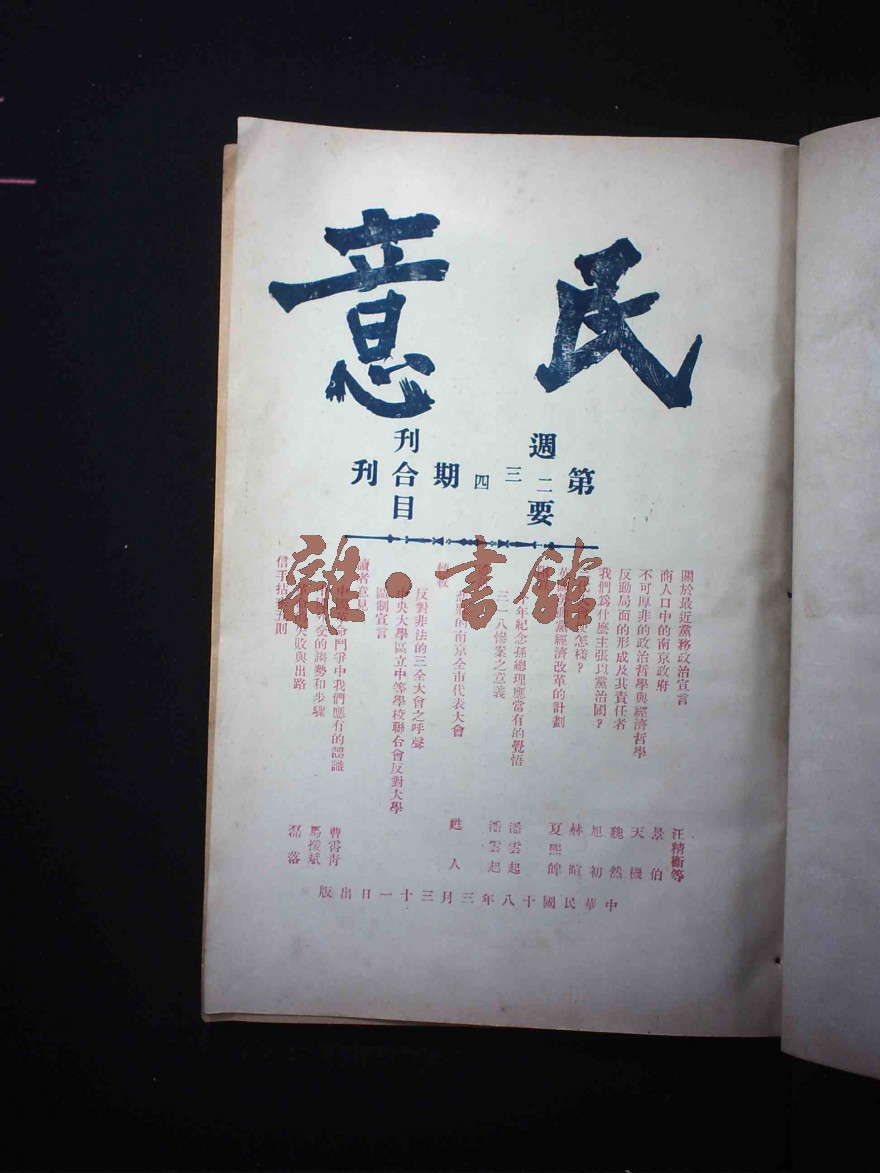 民意
週刊
第二三四期合刊
要目
關於最近黨務政治宣言 汪精衞等
商人口中的南京政府 景伯
不可厚非的政治哲學與經濟哲學 天機
反動局面的形成及其責任者 魏然
我們爲什麼主張以黨治國? 旭初
怎樣? 赫暄
黨經濟改革的計劃 夏熙皥
年紀念孫總理應當有的覺悟 潘雲起
三一八慘案之意義 潘雲起
的南京全市代表大會 甦人
反對非法的三全大會之呼聲
中央大學區立中等學校聯合會反對大學區制宣言
讀者意見
中國革命鬥爭中我們應有的認識 曹霄青
的趨勢和步驟 馬援斌
失敗與出路 磊落
信手拈來五則
中華民國十八年三月三十一日出版
雜·書館